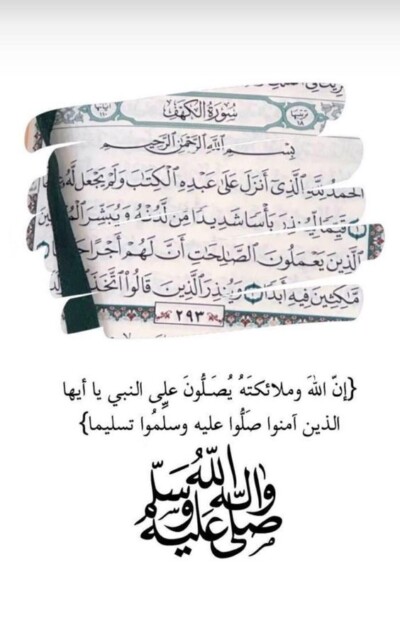 سُورَةُ الكَهْفِ
بِسْمِ اللَّهِ الرَّحْمَٰنِ الرَّحِيمِ
الْحَمْدُ لِلَّهِ الَّذِي أَنزَلَ عَلَىٰ عَبْدِهِ الْكِتَابَ وَلَمْ يَجْعَل لَّهُ
قَيِّمًا لِّيُنذِرَ بَأْسًا شَدِيدًا مِّن لَّدُنْهُ وَيُبَشِّرَ
الَّذِينَ يَعْمَلُونَ الصَّالِحَاتِ أَنَّ لَهُمْ أَجْرًا
مَّاكِثِينَ فِيهِ أَبَدًا وَيُنذِرَ الَّذِينَ قَالُوا اتَّخَذَ
٢٩٣
{إنّ اللهَ وملائكتَهُ يُصَلُّونَ على النبي يا أيها
الذين آمنوا صَلُّوا عليه وسلِّمُوا تسليما}
صلى الله عليه وآله وسلم